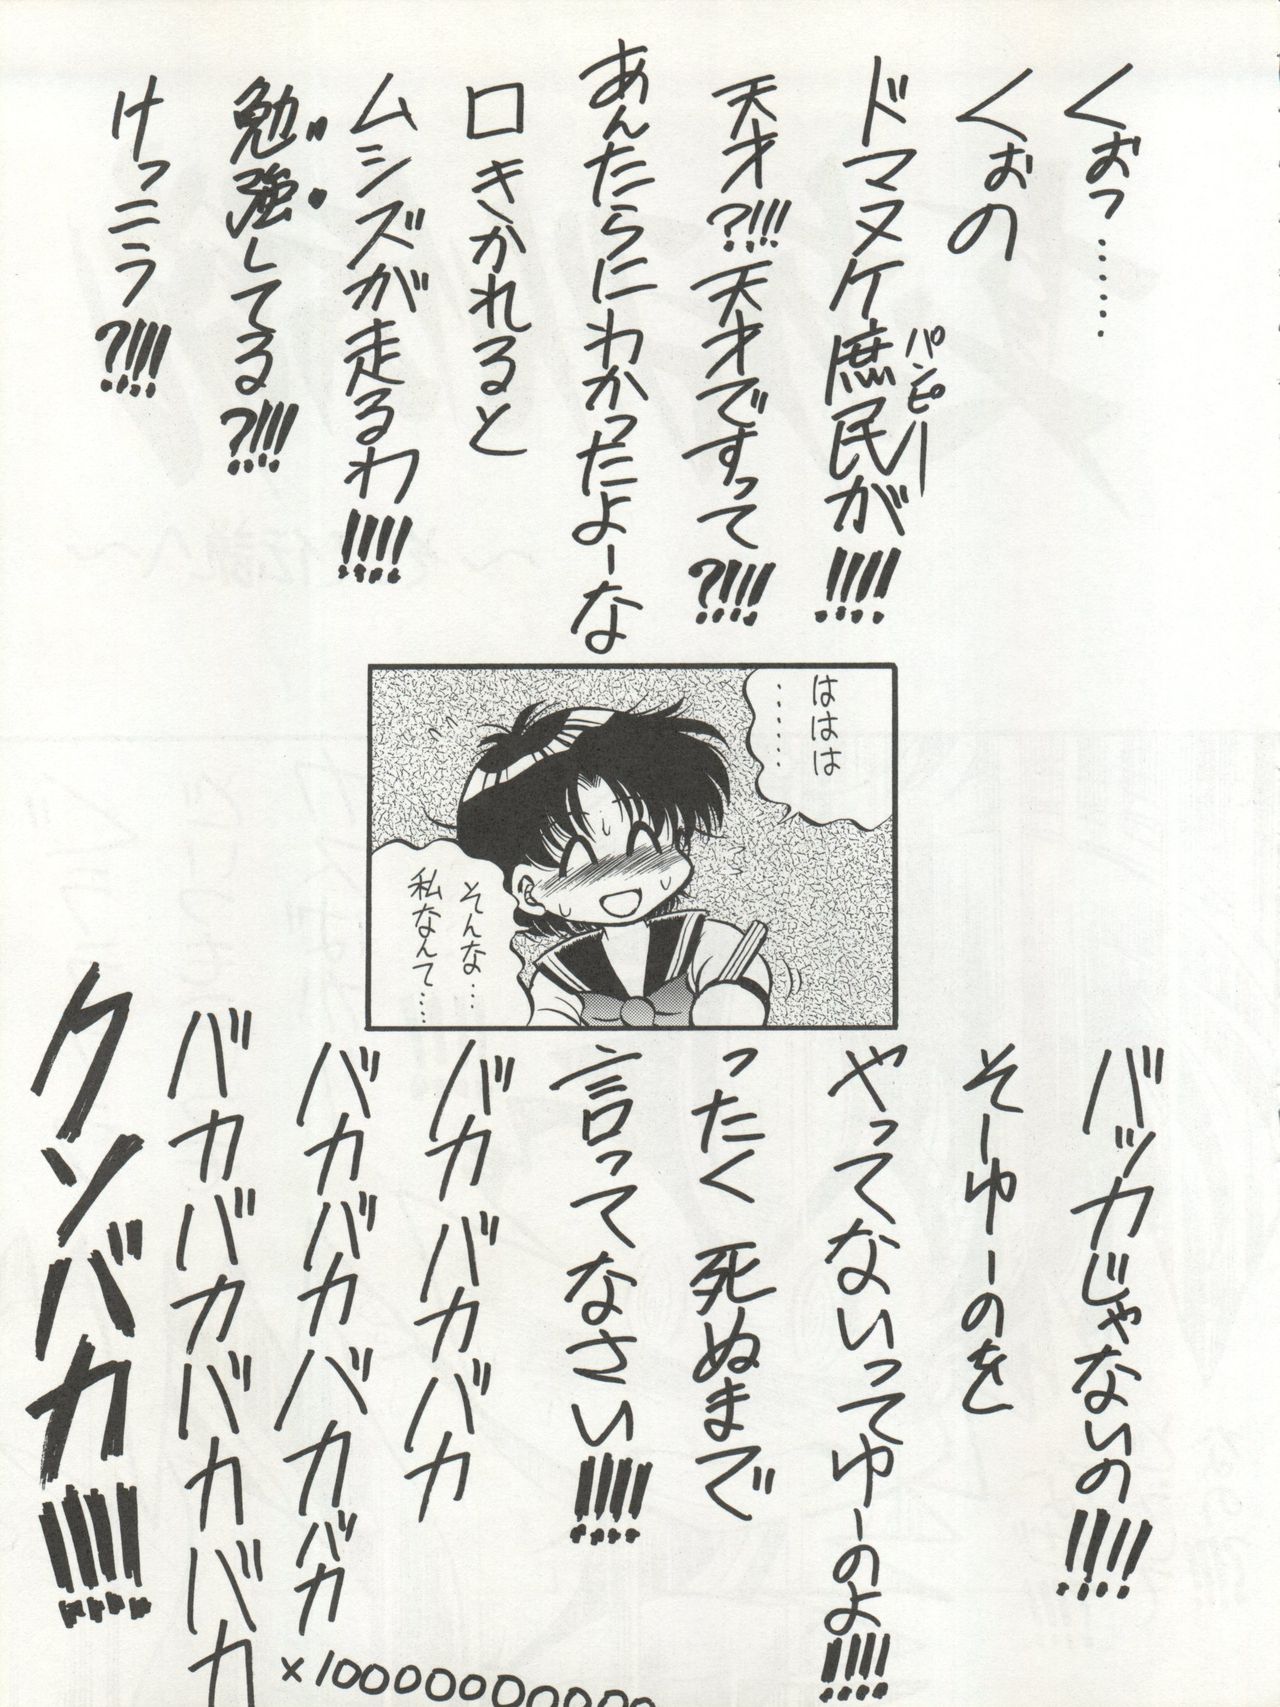 くぉっ……
くぉの
ドマヌケ庶民が!!!!
パンピー
天才?!!!天才ですって?!!!
あんたらにわかったよーな
口きかれると
ムシズが走るわ!!!!
勉強してる?!!!
けっニラ?!!!
ははは……
そんな…
私なんて……
バッカじゃないの!!!!
そーゆーのを
やってないってゆーのよ!!!!
ったく死ぬまで
言ってなさい!!!!
バカバカバカ
バカバカバカバカ
バカバカバカバカ
クソバカ!!!!